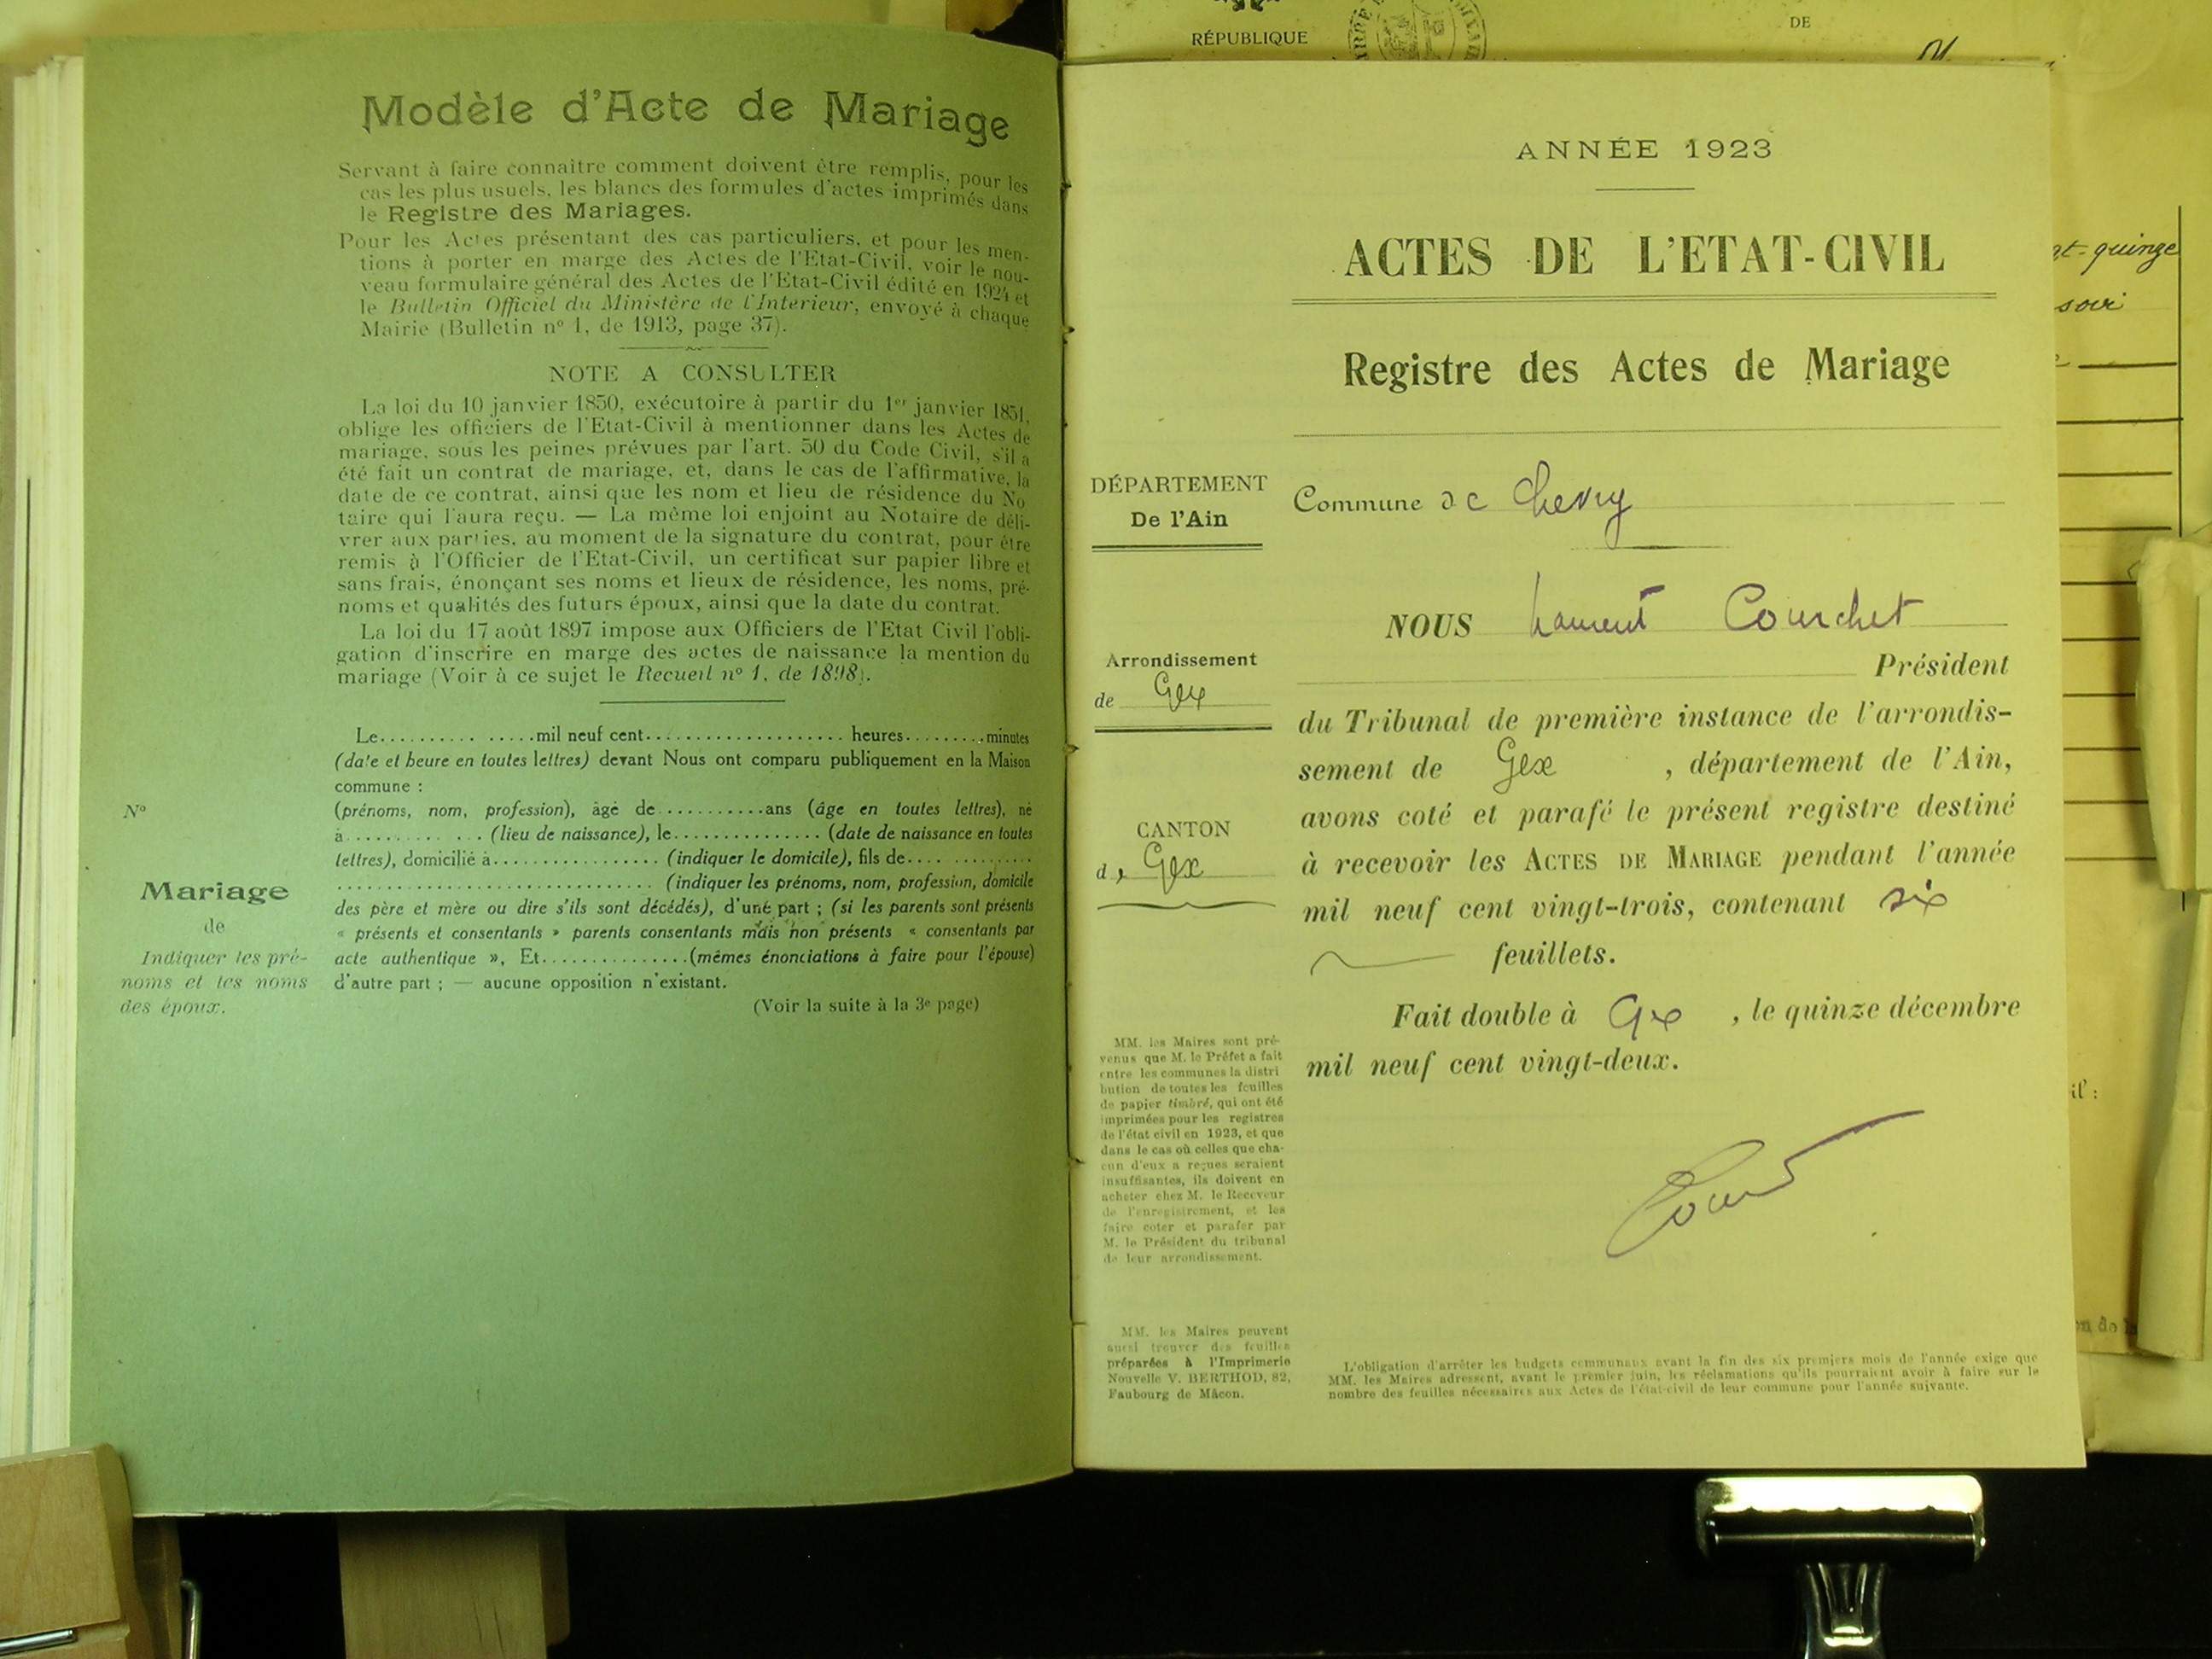 Modèle d'Acte de Mariage
Servant à faire connaître comment doivent être remplis, pour les
cas les plus usuels, les blancs des formules d'actes imprimés dans
le Registre des Mariages.
Pour les Actes présentant des cas particuliers, et pour les men-
tions à porter en marge des Actes de l'Etat-Civil, voir le nou-
veau formulaire général des Actes de l'Etat-Civil édité en 1924 et
le Bulletin Officiel du Ministère de l'Interieur, envoyé à chaque
Mairie (Bulletin nº 1, de 1913, page 37).
NOTE A CONSULTER
La loi du 10 janvier 1850, exécutoire à partir du 1er janvier 1851,
oblige les officiers de l'Etat-Civil à mentionner dans les Actes de
mariage, sous les peines prévues par l'art. 50 du Code Civil, s'il a
été fait un contrat de mariage, et, dans le cas de l'affirmative, la
date de ce contrat, ainsi que les nom et lieu de résidence du No
taire qui l'aura reçu. — La même loi enjoint au Notaire de déli-
vrer aux parties, au moment de la signature du contrat, pour être
remis à l'Officier de l'Etat-Civil, un certificat sur papier libre et
sans frais, énonçant ses noms et lieux de résidence, les noms, pré-
noms et qualités des futurs époux, ainsi que la date du contrat.
La loi du 17 août 1897 impose aux Officiers de l'Etat Civil l'obli-
gation d'inscrire en marge des actes de naissance la mention du
mariage (Voir à ce sujet le Recueil nº 1, de 1898).
Le.......... .....mil neuf cent................... heures.........minutes
(date et heure en toutes lettres) devant Nous ont comparu publiquement en la Maison
commune :
(prénoms, nom, profession), âgé de...........ans (âge en toutes lettres), né
à.............. (lieu de naissance), le............... (date de naissance en toutes
lettres), domicilié à................. (indiquer le domicile), fils de.... ............
................................ (indiquer les prénoms, nom, profession, domicile
des père et mère ou dire s'ils sont décédés), d'une part ; (si les parents sont présents
« présents et consentants » parents consentants mais non présents « consentants par
acte authentique », Et...............(mêmes énonciations à faire pour l'épouse)
d'autre part ; — aucune opposition n'existant.
(Voir la suite à la 3e page)
Nº
Mariage
de
Indiquer les pré-
noms et les noms
des époux.
RÉPUBLIQUE
DE
ANNÉE 1923
ACTES DE L'ETAT-CIVIL
Registre des Actes de Mariage
DÉPARTEMENT
De l'Ain
Arrondissement
de Gex
CANTON
de Gex
MM. les Maires sont pré-
venus que M. le Préfet a fait
entre les communes la distri
bution de toutes les feuilles
de papier timbré, qui ont été
imprimées pour les registres
de l'état civil en 1923, et que
dans le cas où celles que cha-
cun d'eux a reçues seraient
insuffisantes, ils doivent en
acheter chez M. le Receveur
de l'enregistrement, et les
faire coter et parafer par
M. le Président du tribunal
de leur arrondissement.
MM. les Maires peuvent
aussi trouver des feuilles
préparées à l'Imprimerie
Nouvelle V. BERTHOD, 82,
Faubourg de Mâcon.
Commune de Chevry
NOUS Laurent Courchet
Président
du Tribunal de première instance de l'arrondis-
sement de Gex , département de l'Ain,
avons coté et parafé le présent registre destiné
à recevoir les ACTES DE MARIAGE pendant l'année
mil neuf cent vingt-trois, contenant six
feuillets.
Fait double à Gex , le quinze décembre
mil neuf cent vingt-deux.
L'obligation d'arrêter les budgets communaux avant la fin des six premiers mois de l'année exige que
MM. les Maires adressent, avant le premier juin, les réclamations qu'ils pourraient avoir à faire sur le
nombre des feuilles nécessaires aux Actes de l'état-civil de leur commune pour l'année suivante.
quinze
soir